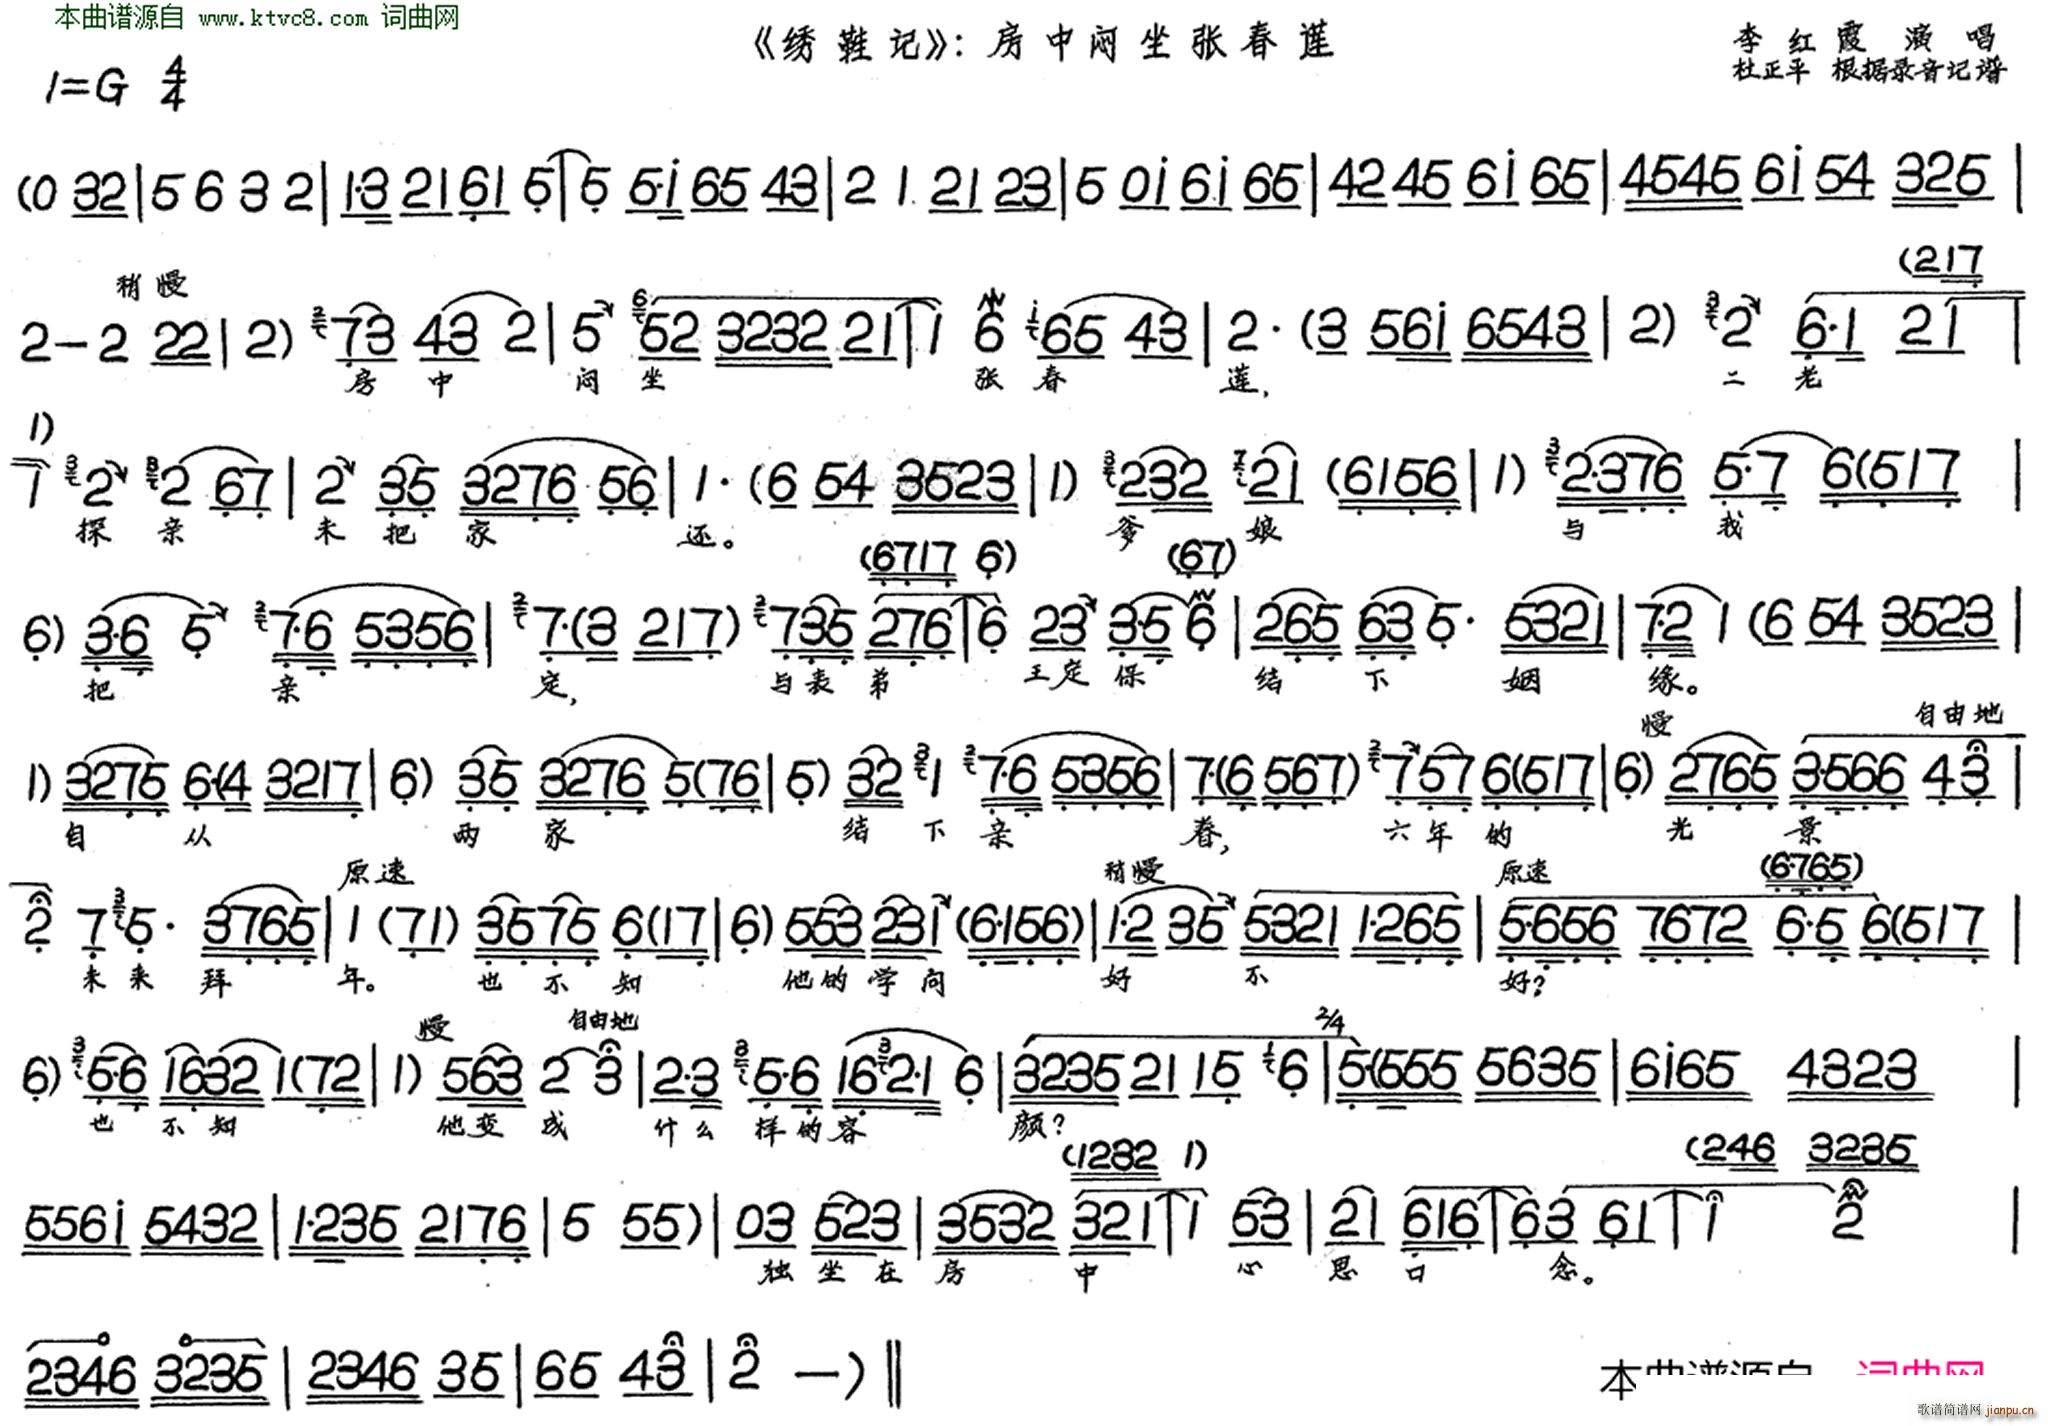 本曲谱源自 www.ktvc8.com 词曲网
《绣鞋记》：房中闷坐张春莲
李红霞演唱
杜正平 根据录音记谱
1=G 4/4
(0 32|5 6 3 2|1·3 2161 5|5 5·i 65 43|2 1 21 23|5 0i 6i 65|42 45 6i 65|4545 6i 54 325|
稍慢
(217
2－2 22|2) 73 43 2|5 52 3232 21 1 6 65 43|2·(3 56i 6543|2) 2 6·1 21|
房 中 闷 坐 张 春 莲， 二 老
1)
1 2 2 67|2 35 3276 56|1·(6 54 3523|1) 232 21 (6156|1) 2·376 5·7 6(517|
探 亲 未 把 家 还。 爹 娘 与 我
(6717 6) (67)
6) 3·6 5 7·6 5356|7·(3 217) 735 276 6 23 3·5 6|265 63 5· 5321|7·2 1 (6 54 3523|
把 亲 定， 与表 弟 王定 保 结 下 姻 缘。
慢 自由地
1) 3275 6·(4 3217|6) 35 3276 5(76|5) 32 1 7·6 5356|7·(6 567) 757 6(517|6) 2765 3·566 43|
自 从 两 家 结 下 亲 眷， 六 年 的 光 景
原速 稍慢 原速 (6·765)
2 7 5· 3765|1 (71) 3575 6(17|6) 553 231 (6·156)|1·2 35 5321 1·265|5·656 7672 6·5 6(517|
未 来 拜 年。 也 不 知 他的 学 问 好 不 好？
慢 自由地 2/4
6) 5·6 1632 1(72|1) 563 2 3|2·3 5·6 162·1 6|3235 21 15 6|5·(555 5635|6i65 4323|
也 不 知 他变 成 什么 样的容 颜？
(1232 1) (246 3235
556i 5432|1·235 2176|5 55)|03 523|3532 321 1 53|21 616 63 61 1 2|
独 坐 在 房 中 心 思 口 念。
2346 3235|2346 35|65 43|2 —)‖
本曲谱源自 词曲网
歌谱简谱网 jianpu.cn